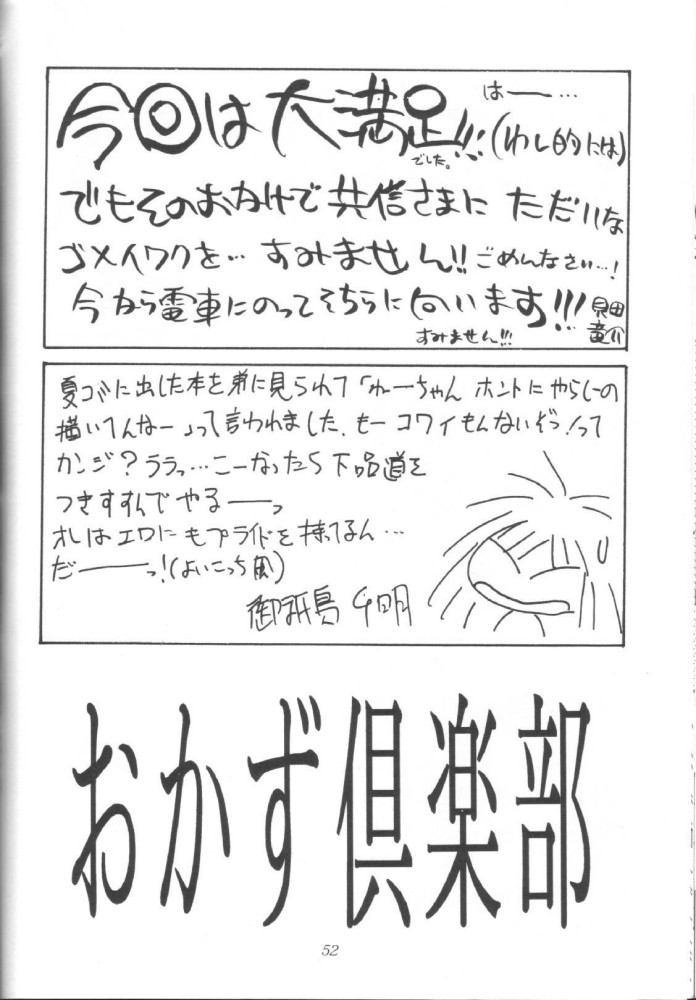 はー…
今回は大満足!!!(わし的には)
でした。
でもそのおかげで共信さまに ただいな
ゴメイワクを… すみません!! ごめんなさい…!
今から電車にのってそちらに向います!!!
すみません!!!
夏コミに出した本を弟に見られて「わーちゃん ホントにやらしーの
描いてんなー」って言われました。もー コワイもんないぞっ!って
カンジ?ララっ…こーなったら下品道を
つきすすんでやるーーっ
オレはエロにもプライドを持てるん…
だーーーっ!(よいこっち風)
おかず倶楽部
52